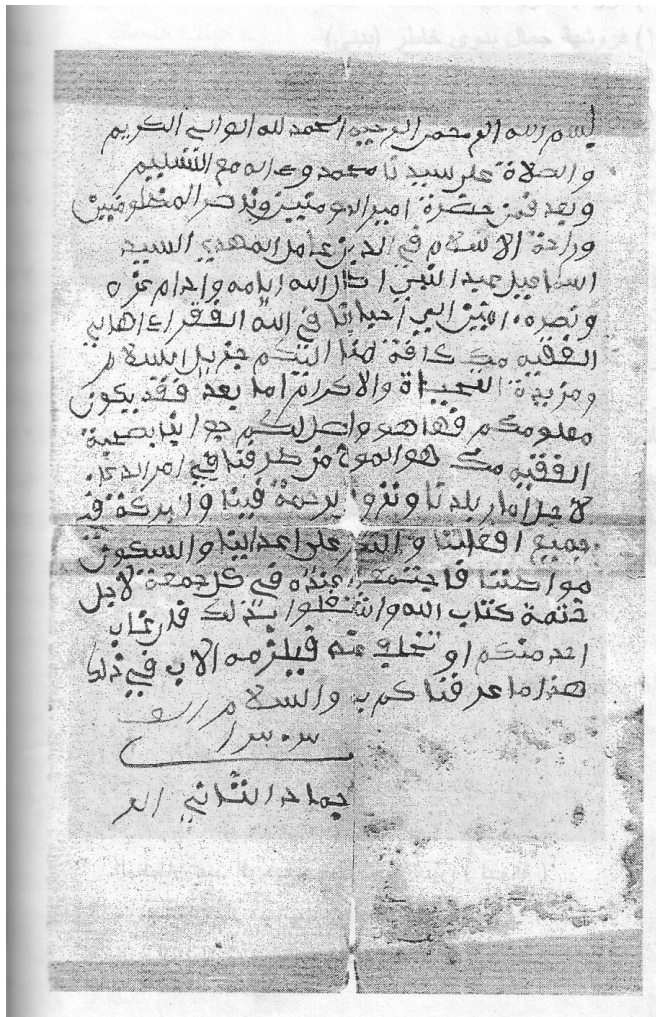 بسم الله الرحمن الرحيم الحمد لله الوالي الكريم
والصلاة على سيدنا محمد وءاله مع التسليم
وبعد فمن حضرة امير المومنين وناصر المظلومين
وراحة الاسلام في الدين عامل المهدي السيد
اسماعيل عبد النبي ادار الله ايامه وادام عزه
ونصره ءامين الي احبابنا في الله الفقراء اهالي
الفقيه مك كافة منا اليكم جزيل السلام
ومزيدة التحية والاكرام اما بعد فقد يكون
معلومكم فها هو واصل لكم جوابنا بصحبة
الفقيه مك هو المو من طرفنا في امر الدعاء
لاجل امار بلدنا ونزول رحمة فينا والبركة في
جميع افعالنا والنصر على اعداينا والسكون
مواطننا فاجتمعوا عنده في كل جمعة لاجل
ختمة كتاب الله واشتغلوا بذلك فان غاب
احد منكم او تخلف عنه فيلزمه الاب في ذلك
هذا ما عرفناكم به والسلام
جماد الثاني